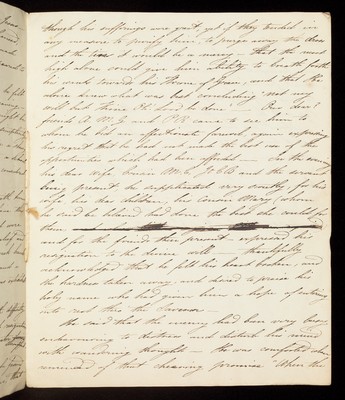 though his sufferings were great yet if they tended in
any measure to purify him to purge away the dross
and the tin it would be a mercy that the most
high alone could give him ability to breath forth
his wants toward his Throne of Grace and that He
alone knew what was best concluding "not my
will but thine O Lord be done" Our dear
friends A M G and P R came to see him to
whom he bid an affectionate farewell again expressing
his regret that he had not made the best use of the
opportunities which had been offered In the evening
his dear wife, cousin M C, J C R and the servant
being present he supplicated very sweetly for his
wife his dear children his Cousin Mary (whom
he said he believed had done the best she could for
them
and for the friends then present expressed his
resignation to the divine will thankfully
acknowledged that he felt his heart broken and
the hardness taken away and desired to praise his
holy name who had given him a hope of entering
into rest thro the Saviour
He said that the enemy had been very busy
endeavouring to distress and disturb his mind
with wandering thoughts He was comforted when
reminded of that cheering promise "When the